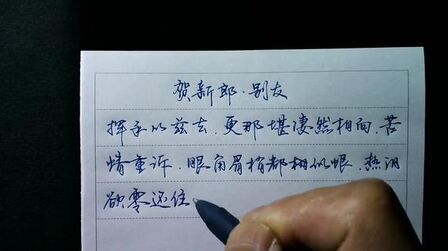 贺新郎·别友
挥手从兹去.更那堪凄然相向.苦
情重诉.眼角眉梢都相似恨.热泪
欲零还住